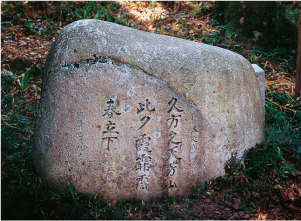 久方之天芳山
此夕霞霏䨴
春立下